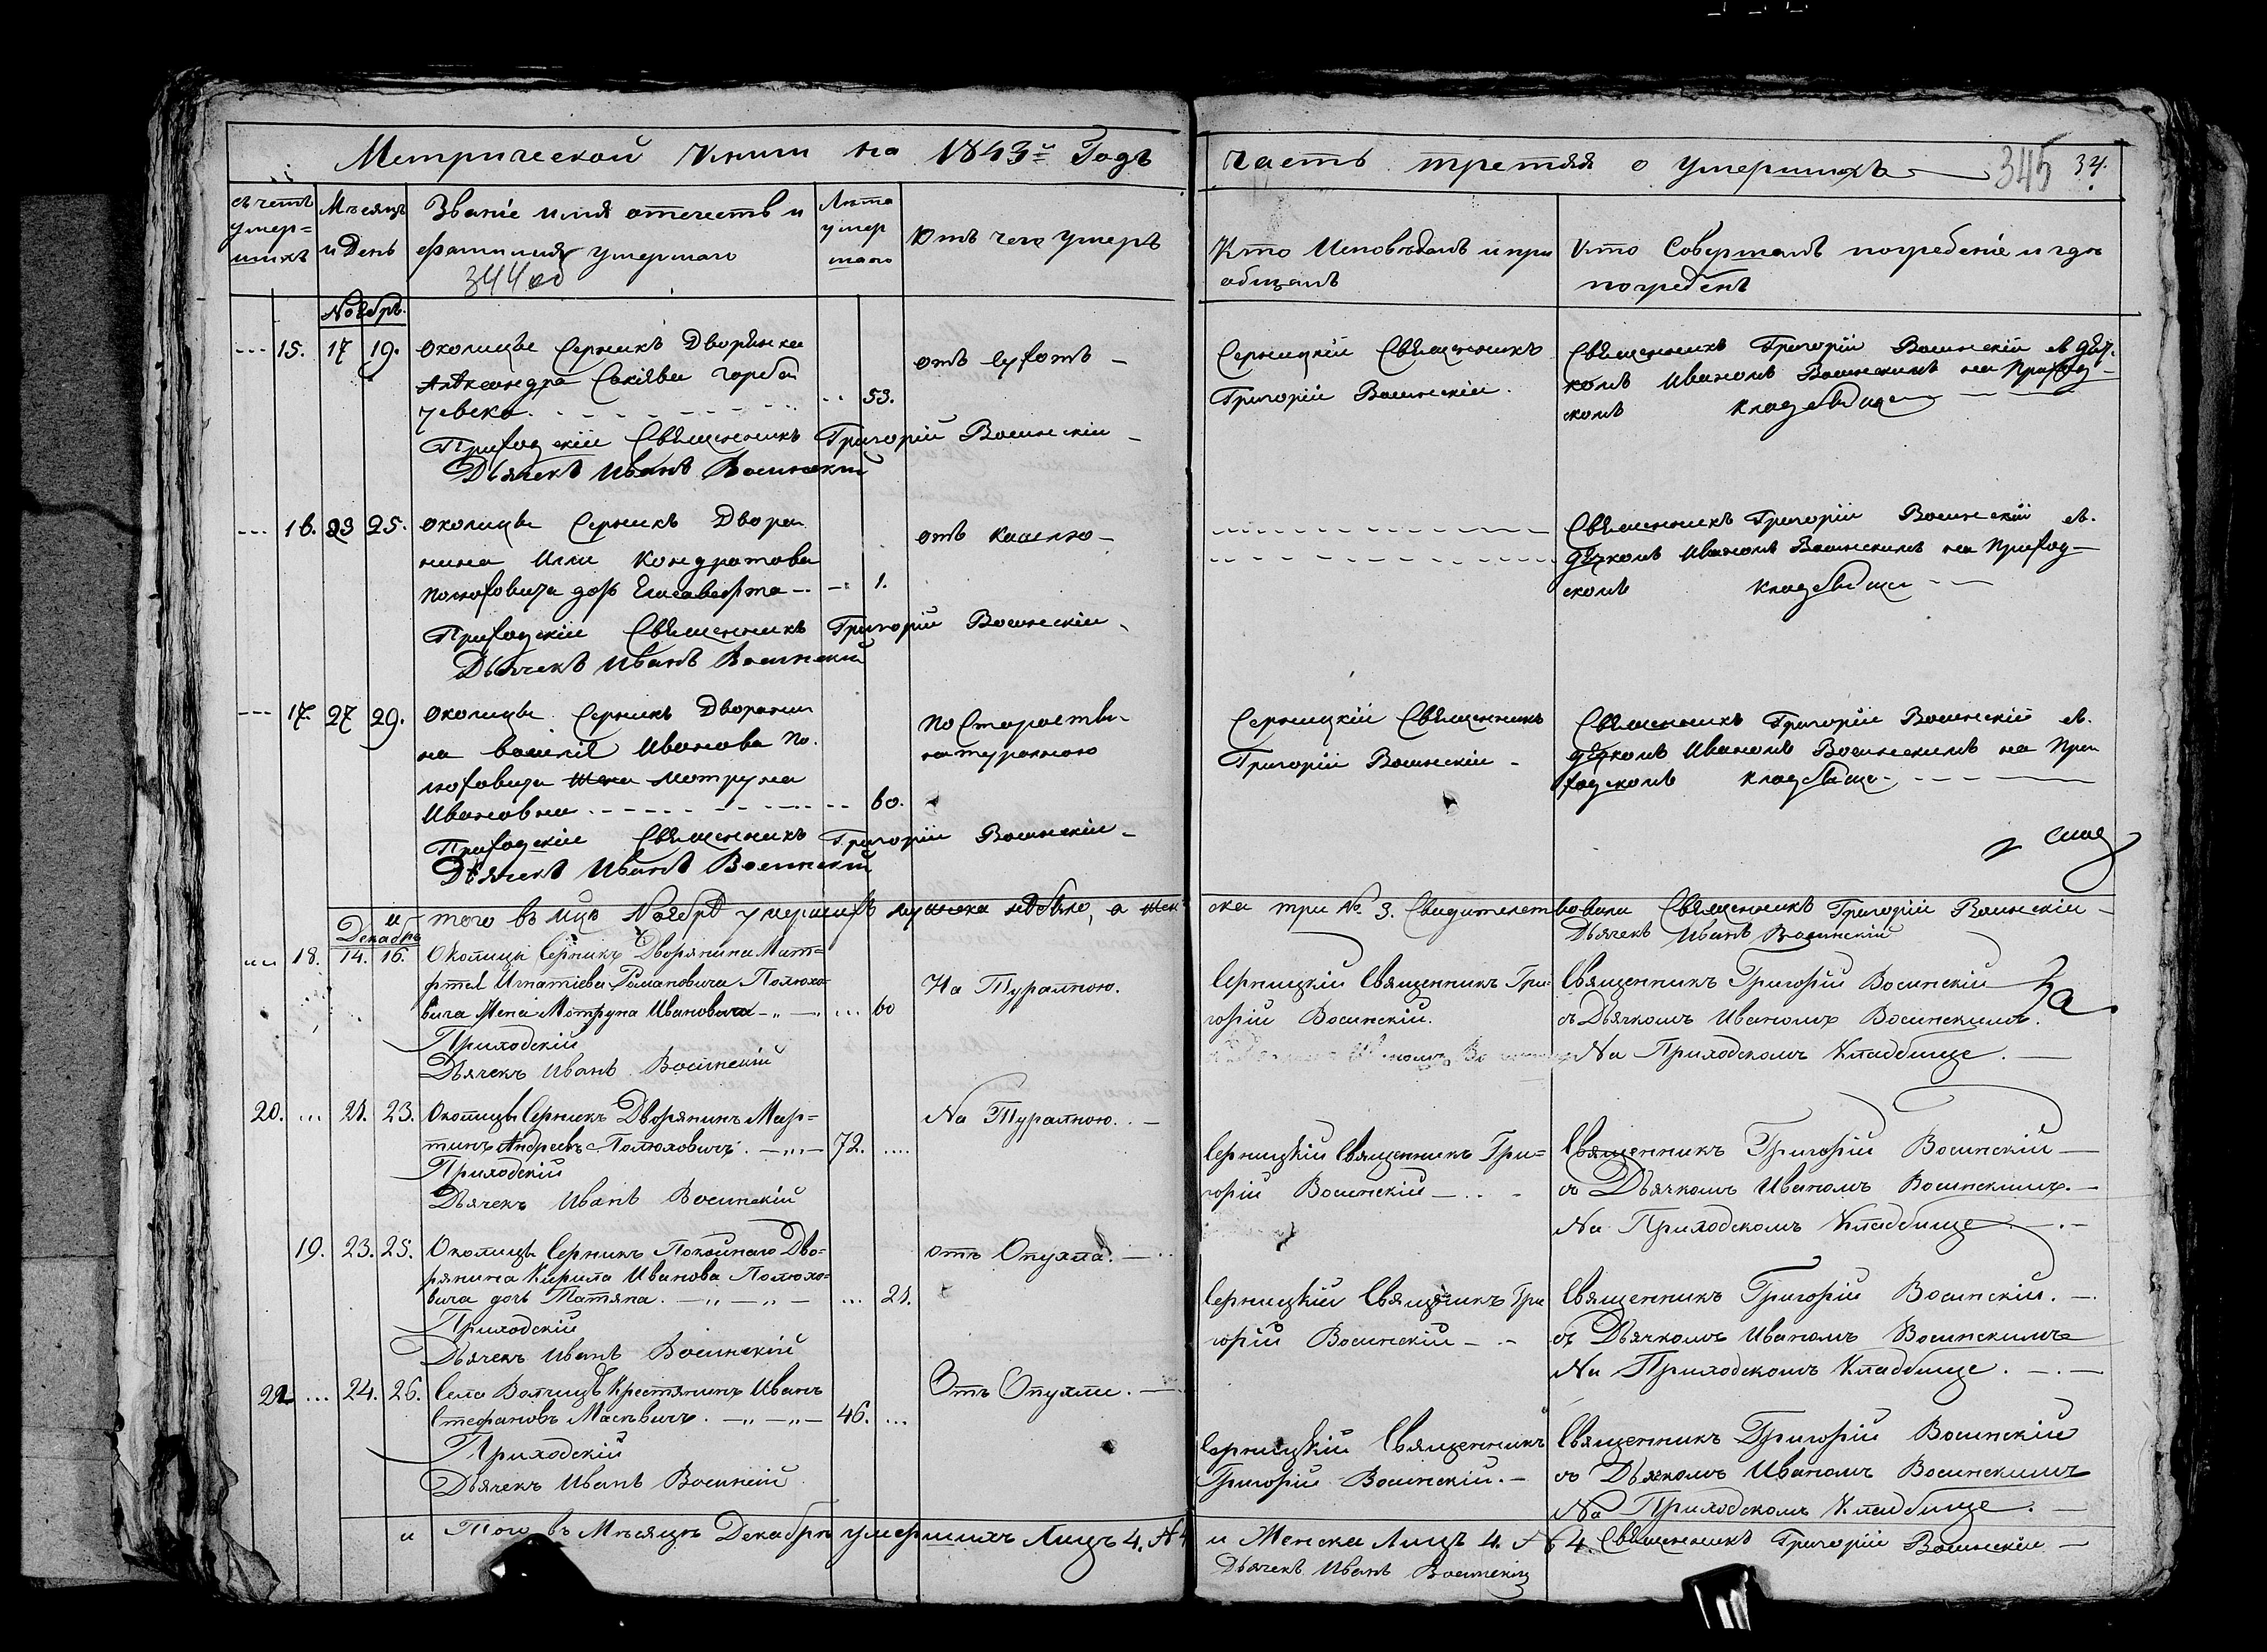 Метрической Книги на 1843й Годъ
часть третяя о умершихъ
345 34.
счетъ умер= шихъ
Мѣсяцъ и День
Званіе имя отечеств и фамилия умершаго
344 об
Лѣта умер шаго
Отъ чего умеръ
Кто Исповѣдалъ и при общалъ
Кто Совершалъ погребеніе и гдѣ погребенъ
Ноябръ.
15. 17 19. околицы Серникъ Дворянка
Александра
53.
отъ сухотъ
Серницкій Священникъ
Григорій Восинскій.
Священникъ Григорій Восинскій съ дяч.
комъ Иваномъ Восинскимъ на Приход
скомъ кладбище
Приходскій Священникъ Григорій Восинскій
Дьячекъ Иванъ Восинский
16. 23 25. околицы Серникъ Дворя
нина Или Кондратова
полюховича дочь Елисавефта 1.
отъ кашлю
Священникъ Григорій Восинскій съ
дячкомъ Иваномъ Восинскимъ на Приход
скомъ кладбище
Приходскій Священникъ Григорій Восинскій
Дьячекъ Иванъ Восинский
17. 27 29. околицы Серникъ Дворяни
на Василія Иванова По
люховича жена Мотруна
Ивановна 60.
По Старости
натуралною
Серницкій Священникъ
Григорій Восинскій
Священникъ Григорій Восинскій съ
дячкомъ Иваномъ Восинскимъ на При
ходскомъ кладбище
Приходскій Священникъ Григорій Восинскій
Дьячекъ Иванъ Восинский
и того въ мцѣ Ноябрѣ умершихъ мужеска небыло, а жен
ска три № 3. Свидителствовали Священникъ Григорій Восинскій
Дьячекъ Иванъ Восинскій
Декабръ
18. 14. 16. Околицы Серникъ Дворянина Мат=
фтея Игнатіева Романовича Полюхо=
вича Жена Мотруна Ивановна 60
На Туралною.
Серницкій Священникъ Гри=
горій Восинскій.
Священникъ Григорій Восинскій
съ Дьячкомъ Иваномъ Восинскимъ.
На Приходскомъ Кладбище.
Приходскій
Дьячекъ Иванъ Восинскій
20. 21. 23. Околицы Серникъ Дворянинъ Мар=
тинъ Андреевъ Полюховичъ. 72.
На Туралною.
Серницкій Священникъ Гри=
горій Восинскій
Священникъ Григорій Восинскій
съ Дьячкомъ Иваномъ Восинскимъ.
На Приходскомъ Кладбище
Приходскій
Дьячекъ Иванъ Восинскій
19. 23. 25. Околицы Серникъ Покойнаго Дво=
рянина Кирила Иванова Полюхо=
вича дочь Татяна. 21.
отъ Опухла.
Серницкій Священикъ Гри
горій Восинскій
Священникъ Григорій Восинскій.
съ Дьячкомъ Иваномъ Восинскимъ
На Приходскомъ Кладбище.
Приходскій
Дьячекъ Иванъ Восинскій
24. 26. Села Волчицъ Крестянинъ Иванъ
Стефановъ Масъвичъ. 46.
Отъ Опухли.
Серницкій Священникъ
Григорій Восинскій.
Священникъ Григорій Восинскій
съ Дьякомъ Иваномъ Восинскимъ
На Приходскомъ Кладбище.
Приходскій
Дьячекъ Иванъ Восинскій
и Того въ Мѣсяцѣ Декабрѣ умершихъ Лицъ 4. № 4
и Женска Лицъ 4. № 4 Священникъ Григорій Восинскій
Дьячекъ Иванъ Восинскій